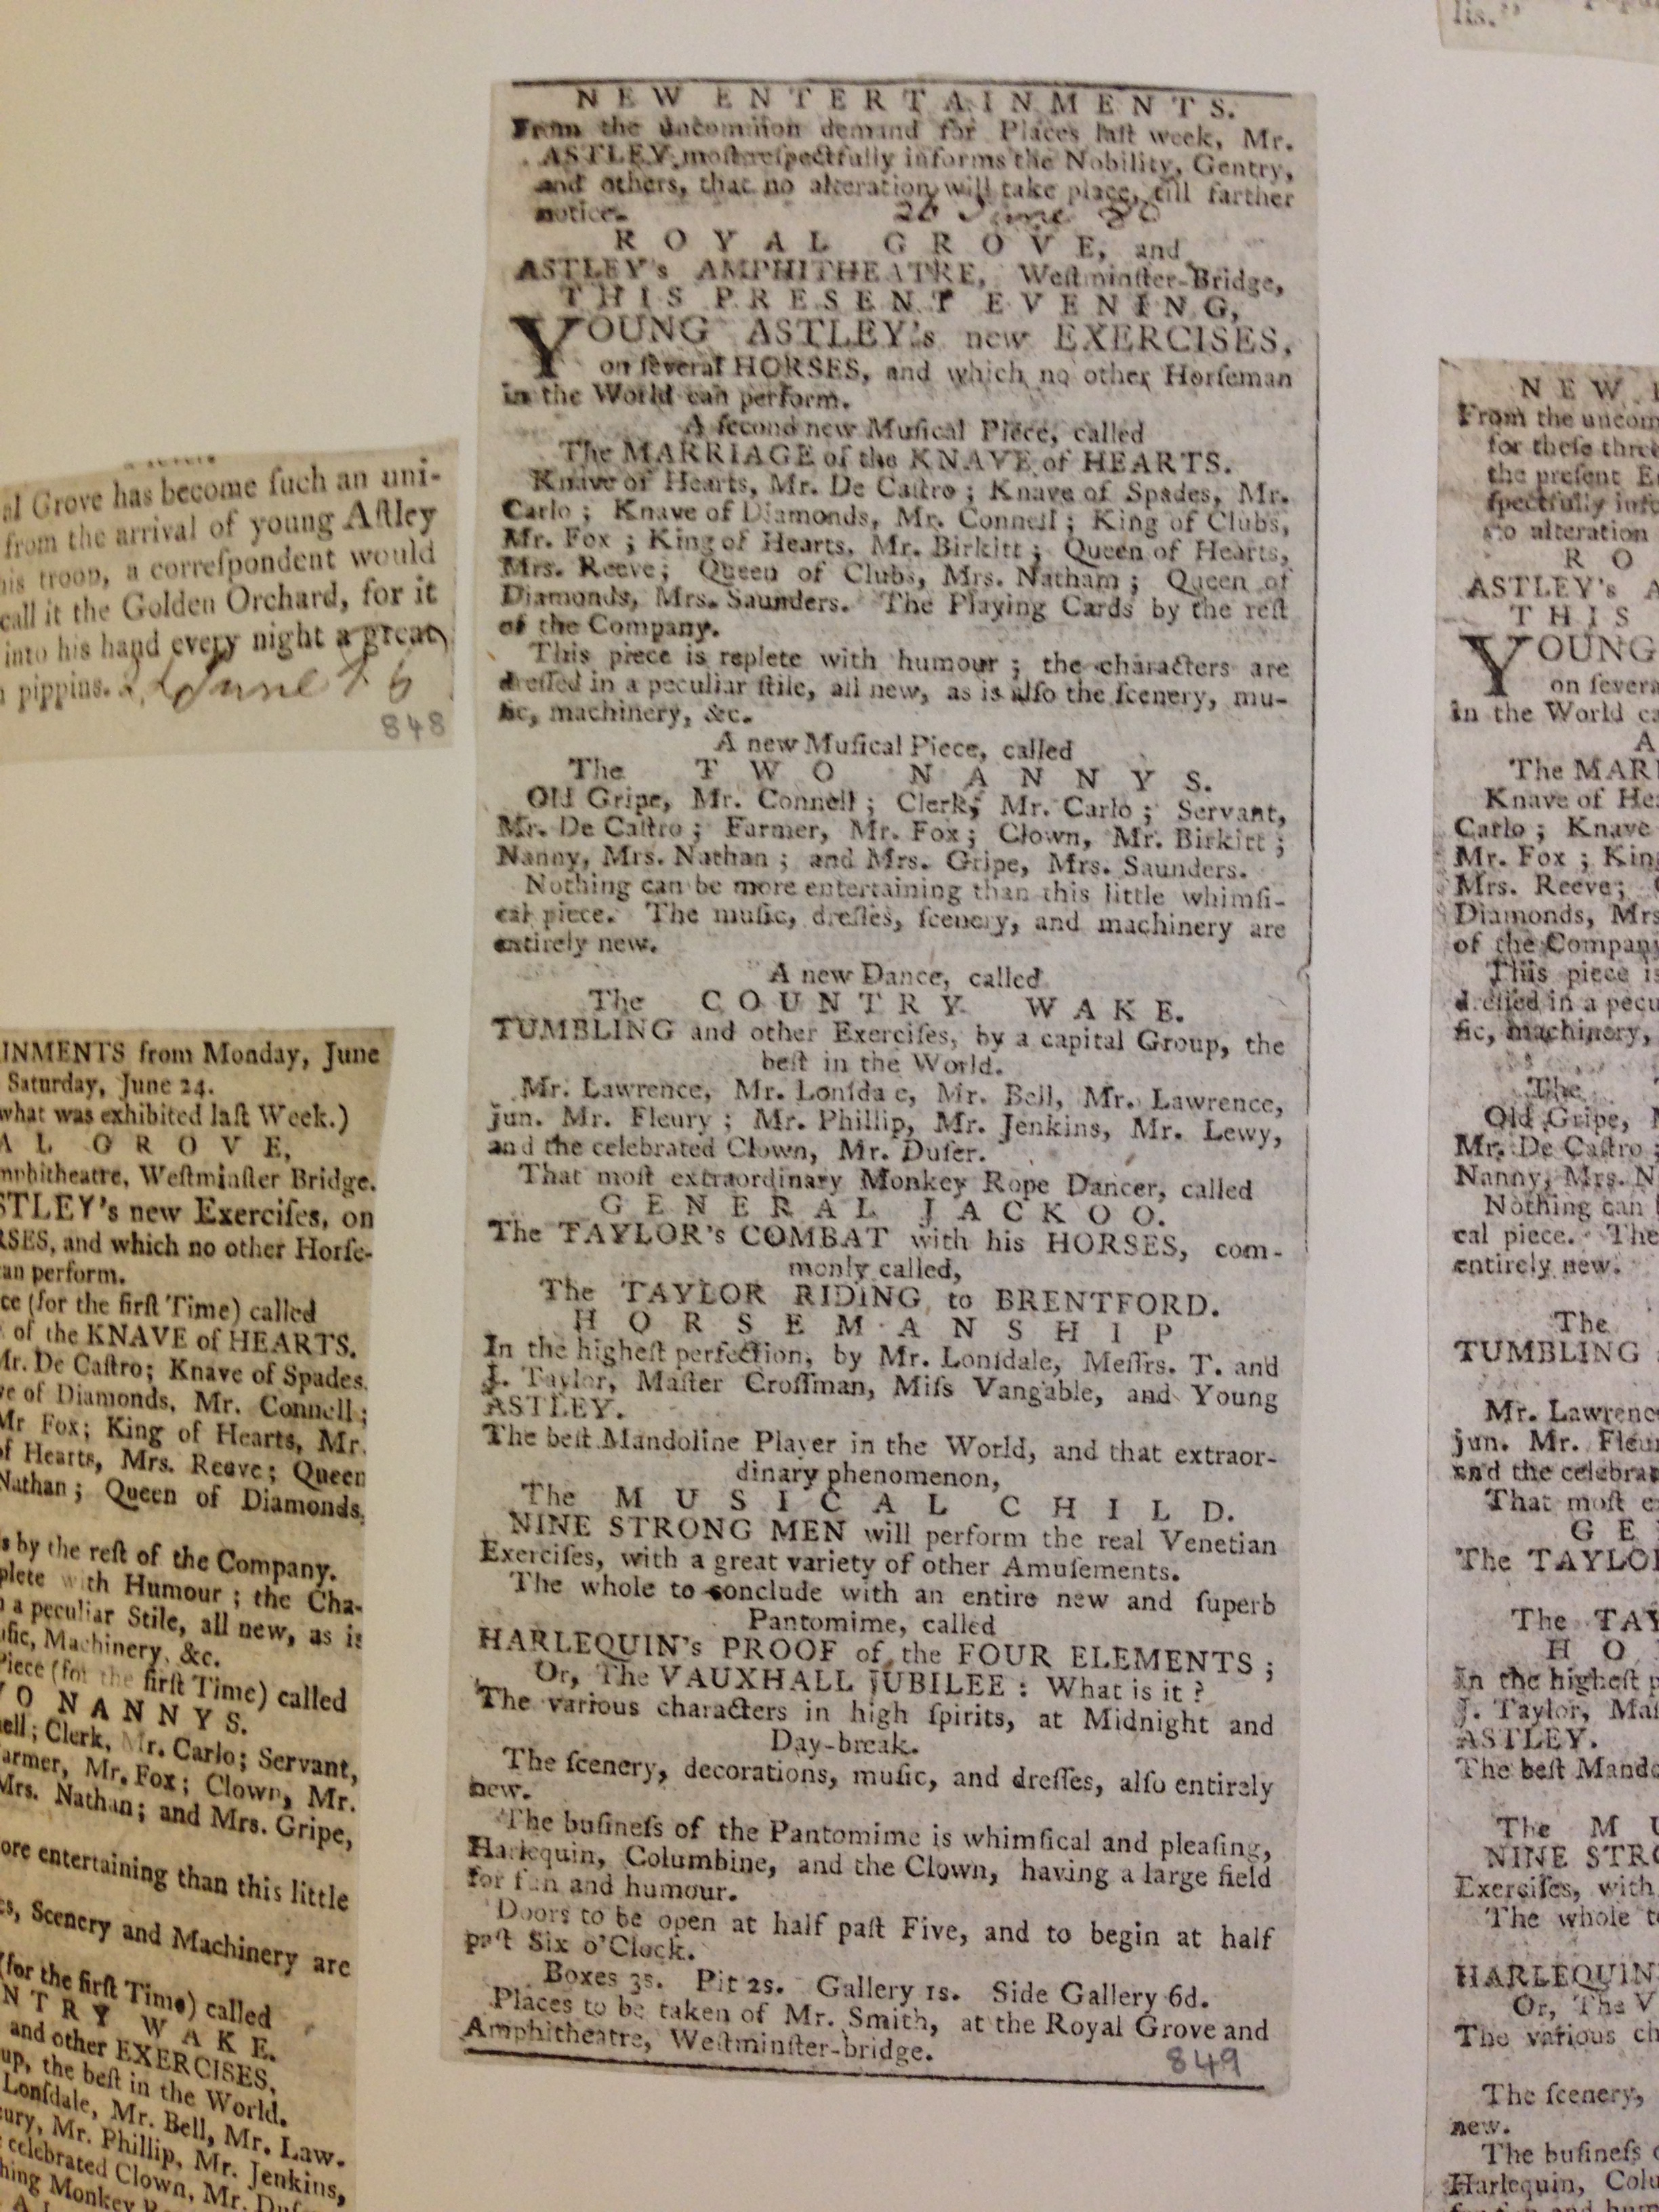 lis."
al Grove has become ſuch an uni-
from the arrival of young Aſtley
his troop, a correſpondent would
call it the Golden Orchard, for it
into his hand every night a great
pippins. June
848
INMENTS from Monday, June
Saturday, June 24.
what was exhibited laſt Week.)
A L G R O V E,
mphitheatre, Weſtminſter Bridge.
STLEY's new Exerciſes, on
RSES, and which no other Horſe-
an perform.
ce (for the firſt Time) called
of the KNAVE of HEARTS.
Mr. De Caſtro; Knave of Spades,
ve of Diamonds, Mr. Connell;
Mr Fox; King of Hearts, Mr.
of Hearts, Mrs. Reeve; Queen
Nathan; Queen of Diamonds,
s by the reſt of the Company.
plete with Humour; the Cha-
n a peculiar Stile, all new, as is
uſic, Machinery, &c.
Piece (for the firſt Time) called
W O N A N N Y S.
nell; Clerk, Mr. Carlo; Servant,
armer, Mr. Fox; Clown, Mr.
Mrs. Nathan; and Mrs. Gripe,
ore entertaining than this little
es, Scenery and Machinery are
(for the firſt Time) called
N T R Y W A K E.
and other EXERCISES,
up, the beſt in the World.
Lonſdale, Mr. Bell, Mr. Law-
ury, Mr. Phillip, Mr. Jenkins,
celebrated Clown, Mr.
hing Monkey
NEW ENTERTAINMENTS.
From the uncommon demand for Places laſt week, Mr.
ASTLEY moſt reſpectfully informs the Nobility, Gentry,
and others, that no alteration will take place, till farther
notice. 26 June 86
ROYAL GROVE, and
ASTLEY's AMPHITHEATRE, Weſtminſter-Bridge,
THIS PRESENT EVENING,
YOUNG ASTLEY's new EXERCISES,
on ſeveral HORSES, and which no other Horſeman
in the World can perform.
A ſecond new Muſical Piece, called
The MARRIAGE of the KNAVE of HEARTS.
Knave of Hearts, Mr. De Caſtro; Knave of Spades, Mr.
Carlo; Knave of Diamonds, Mr. Connell; King of Clubs,
Mr. Fox; King of Hearts, Mr. Birkitt; Queen of Hearts,
Mrs. Reeve; Queen of Clubs, Mrs. Natham; Queen of
Diamonds, Mrs. Saunders. The Playing Cards by the reſt
of the Company.
This piece is replete with humour; the characters are
dreſſed in a peculiar ſtile, all new, as is alſo the ſcenery, mu-
ſic, machinery, &c.
A new Muſical Piece, called
The TWO NANNYS.
Old Gripe, Mr. Connell; Clerk, Mr. Carlo; Servant,
Mr. De Caſtro; Farmer, Mr. Fox; Clown, Mr. Birkitt;
Nanny, Mrs. Nathan; and Mrs. Gripe, Mrs. Saunders.
Nothing can be more entertaining than this little whimſi-
cal piece. The muſic, dreſſes, ſcenery, and machinery are
entirely new.
A new Dance, called
The COUNTRY WAKE.
TUMBLING and other Exerciſes, by a capital Group, the
beſt in the World.
Mr. Lawrence, Mr. Lonſda e, Mr. Bell, Mr. Lawrence,
jun. Mr. Fleury; Mr. Phillip, Mr. Jenkins, Mr. Lewy,
and the celebrated Clown, Mr. Duſer.
That moſt extraordinary Monkey Rope Dancer, called
GENERAL JACKOO.
The TAYLOR's COMBAT with his HORSES, com-
monly called,
The TAYLOR RIDING to BRENTFORD.
HORSEMANSHIP
In the higheſt perfection, by Mr. Lonſdale, Meſſrs. T. and
J. Taylor, Maſter Croſſman, Miſs Vangable, and Young
ASTLEY.
The beſt Mandoline Player in the World, and that extraor-
dinary phenomenon,
The MUSICAL CHILD.
NINE STRONG MEN will perform the real Venetian
Exerciſes, with a great variety of other Amuſements.
The whole to conclude with an entire new and ſuperb
Pantomime, called
HARLEQUIN's PROOF of the FOUR ELEMENTS;
Or, The VAUXHALL JUBILEE: What is it?
The various characters in high ſpirits, at Midnight and
Day-break.
The ſcenery, decorations, muſic, and dreſſes, alſo entirely
new.
The buſineſs of the Pantomime is whimſical and pleaſing,
Harlequin, Columbine, and the Clown, having a large field
for fun and humour.
Doors to be open at half paſt Five, and to begin at half
paſt Six o'Clock.
Boxes 3s. Pit 2s. Gallery 1s. Side Gallery 6d.
Places to be taken of Mr. Smith, at the Royal Grove and
Amphitheatre, Weſtminſter-bridge.
849
NEW
From the uncom
for theſe three
the preſent E
ſpectfully info
no alteration
R O
ASTLEY's A
THIS
YOUNG
on ſevera
in the World ca
A
The MAR
Knave of Hea
Carlo; Knave
Mr. Fox; King
Mrs. Reeve;
Diamonds, Mrs
of the Company
This piece is
dreſſed in a pecu
ſic, machinery,
The
Old Gripe, M
Mr. De Caſtro;
Nanny, Mrs. N
Nothing can
cal piece. The
entirely new.
The
TUMBLING
Mr. Lawrence
jun. Mr. Fleu
and the celebrat
That moſt e
G E
The TAYLO
The TAY
H O
In the higheſt p
J. Taylor, Maſ
ASTLEY.
The beſt Mando
The M U
NINE STRO
Exerciſes, with
The whole to
HARLEQUIN
Or, The V
The various ch
The ſcenery,
new.
The buſineſs
Harlequin, Colu